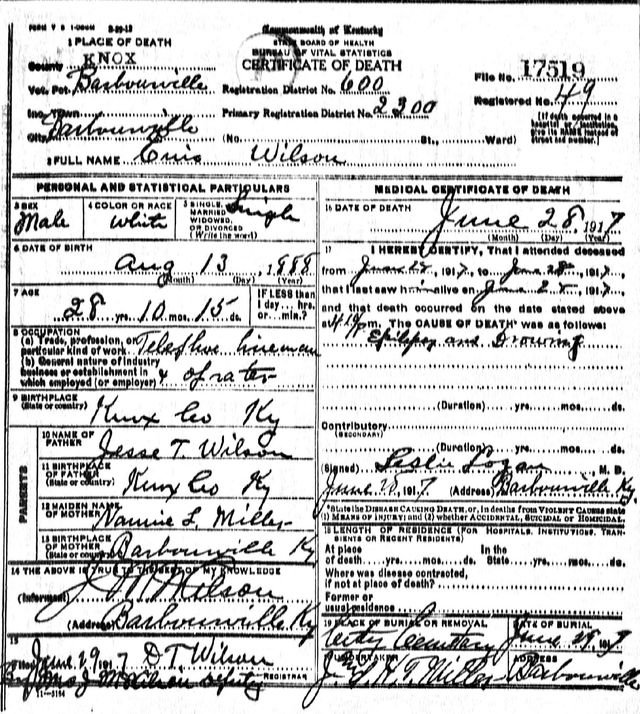 FORM V S 1-
Commonwealth of Kentucky
STATE BOARD OF HEALTH
BUREAU OF VITAL STATISTICS
CERTIFICATE OF DEATH
1 PLACE OF DEATH
County KNOX
Vot. Pct. Barbourville
Inc. Town
City Barbourville
Registration District No. 600
Primary Registration District No. 2300
(No. St., Ward)
File No. 17519
Registered No. 49
[If death occurred in a hospital or institution, give its NAME instead of street and number.]
2 FULL NAME Wilson
PERSONAL AND STATISTICAL PARTICULARS
3 SEX
Male
4 COLOR OR RACE
White
5 SINGLE, MARRIED, WIDOWED, OR DIVORCED (Write the word)
Single
6 DATE OF BIRTH
Aug 13, 1888
(Month) (Day) (Year)
7 AGE
28 yrs. 10 mos. 15 ds.
IF LESS than 1 day, hrs. or min.?
8 OCCUPATION
(a) Trade, profession, or particular kind of work Telephone lineman
(b) General nature of industry business or establishment in which employed (or employer) & oprater
9 BIRTHPLACE
(State or country) Knox Co Ky
PARENTS
10 NAME OF FATHER Jesse T. Wilson
11 BIRTHPLACE OF FATHER (State or country) Knox Co Ky
12 MAIDEN NAME OF MOTHER Nannie L. Miller
13 BIRTHPLACE OF MOTHER (State or country) Barbourville Ky
14 THE ABOVE IS TRUE TO THE BEST OF MY KNOWLEDGE
(Informant) J M Wilson
(Address) Barbourville Ky
15
Filed June 29 1917 D T Wilson
REGISTRAR
By J M Wilson Deputy
11-3184
MEDICAL CERTIFICATE OF DEATH
16 DATE OF DEATH
June 28, 1917
(Month) (Day) (Year)
17 I HEREBY CERTIFY, That I attended deceased
from June, 1917, to June 28, 1917,
that I last saw him alive on June, 1917,
and that death occurred on the date stated above
at pm. The CAUSE OF DEATH* was as follows:
Epilepsy and Drowning
(Duration) yrs. mos. ds.
Contributory
(SECONDARY)
(Duration) yrs. mos. ds.
(Signed) Leslie Logan, M. D.
June 28, 1917 (Address) Barbourville Ky.
*State the DISEASE CAUSING DEATH, or, in deaths from VIOLENT CAUSES state
1) MEANS OF INJURY; and (2) whether ACCIDENTAL, SUICIDAL or HOMICIDAL.
18 LENGTH OF RESIDENCE (FOR HOSPITALS, INSTITUTIONS, TRANSIENTS OR RECENT RESIDENTS)
At place of death yrs. mos. ds. In the State yrs. mos. ds.
Where was disease contracted, if not at place of death?
Former or usual residence
19 PLACE OF BURIAL OR REMOVAL
City Cemetary
DATE OF BURIAL
June 29, 1917
20 UNDERTAKER
H. T. Miller
ADDRESS
Barbourville